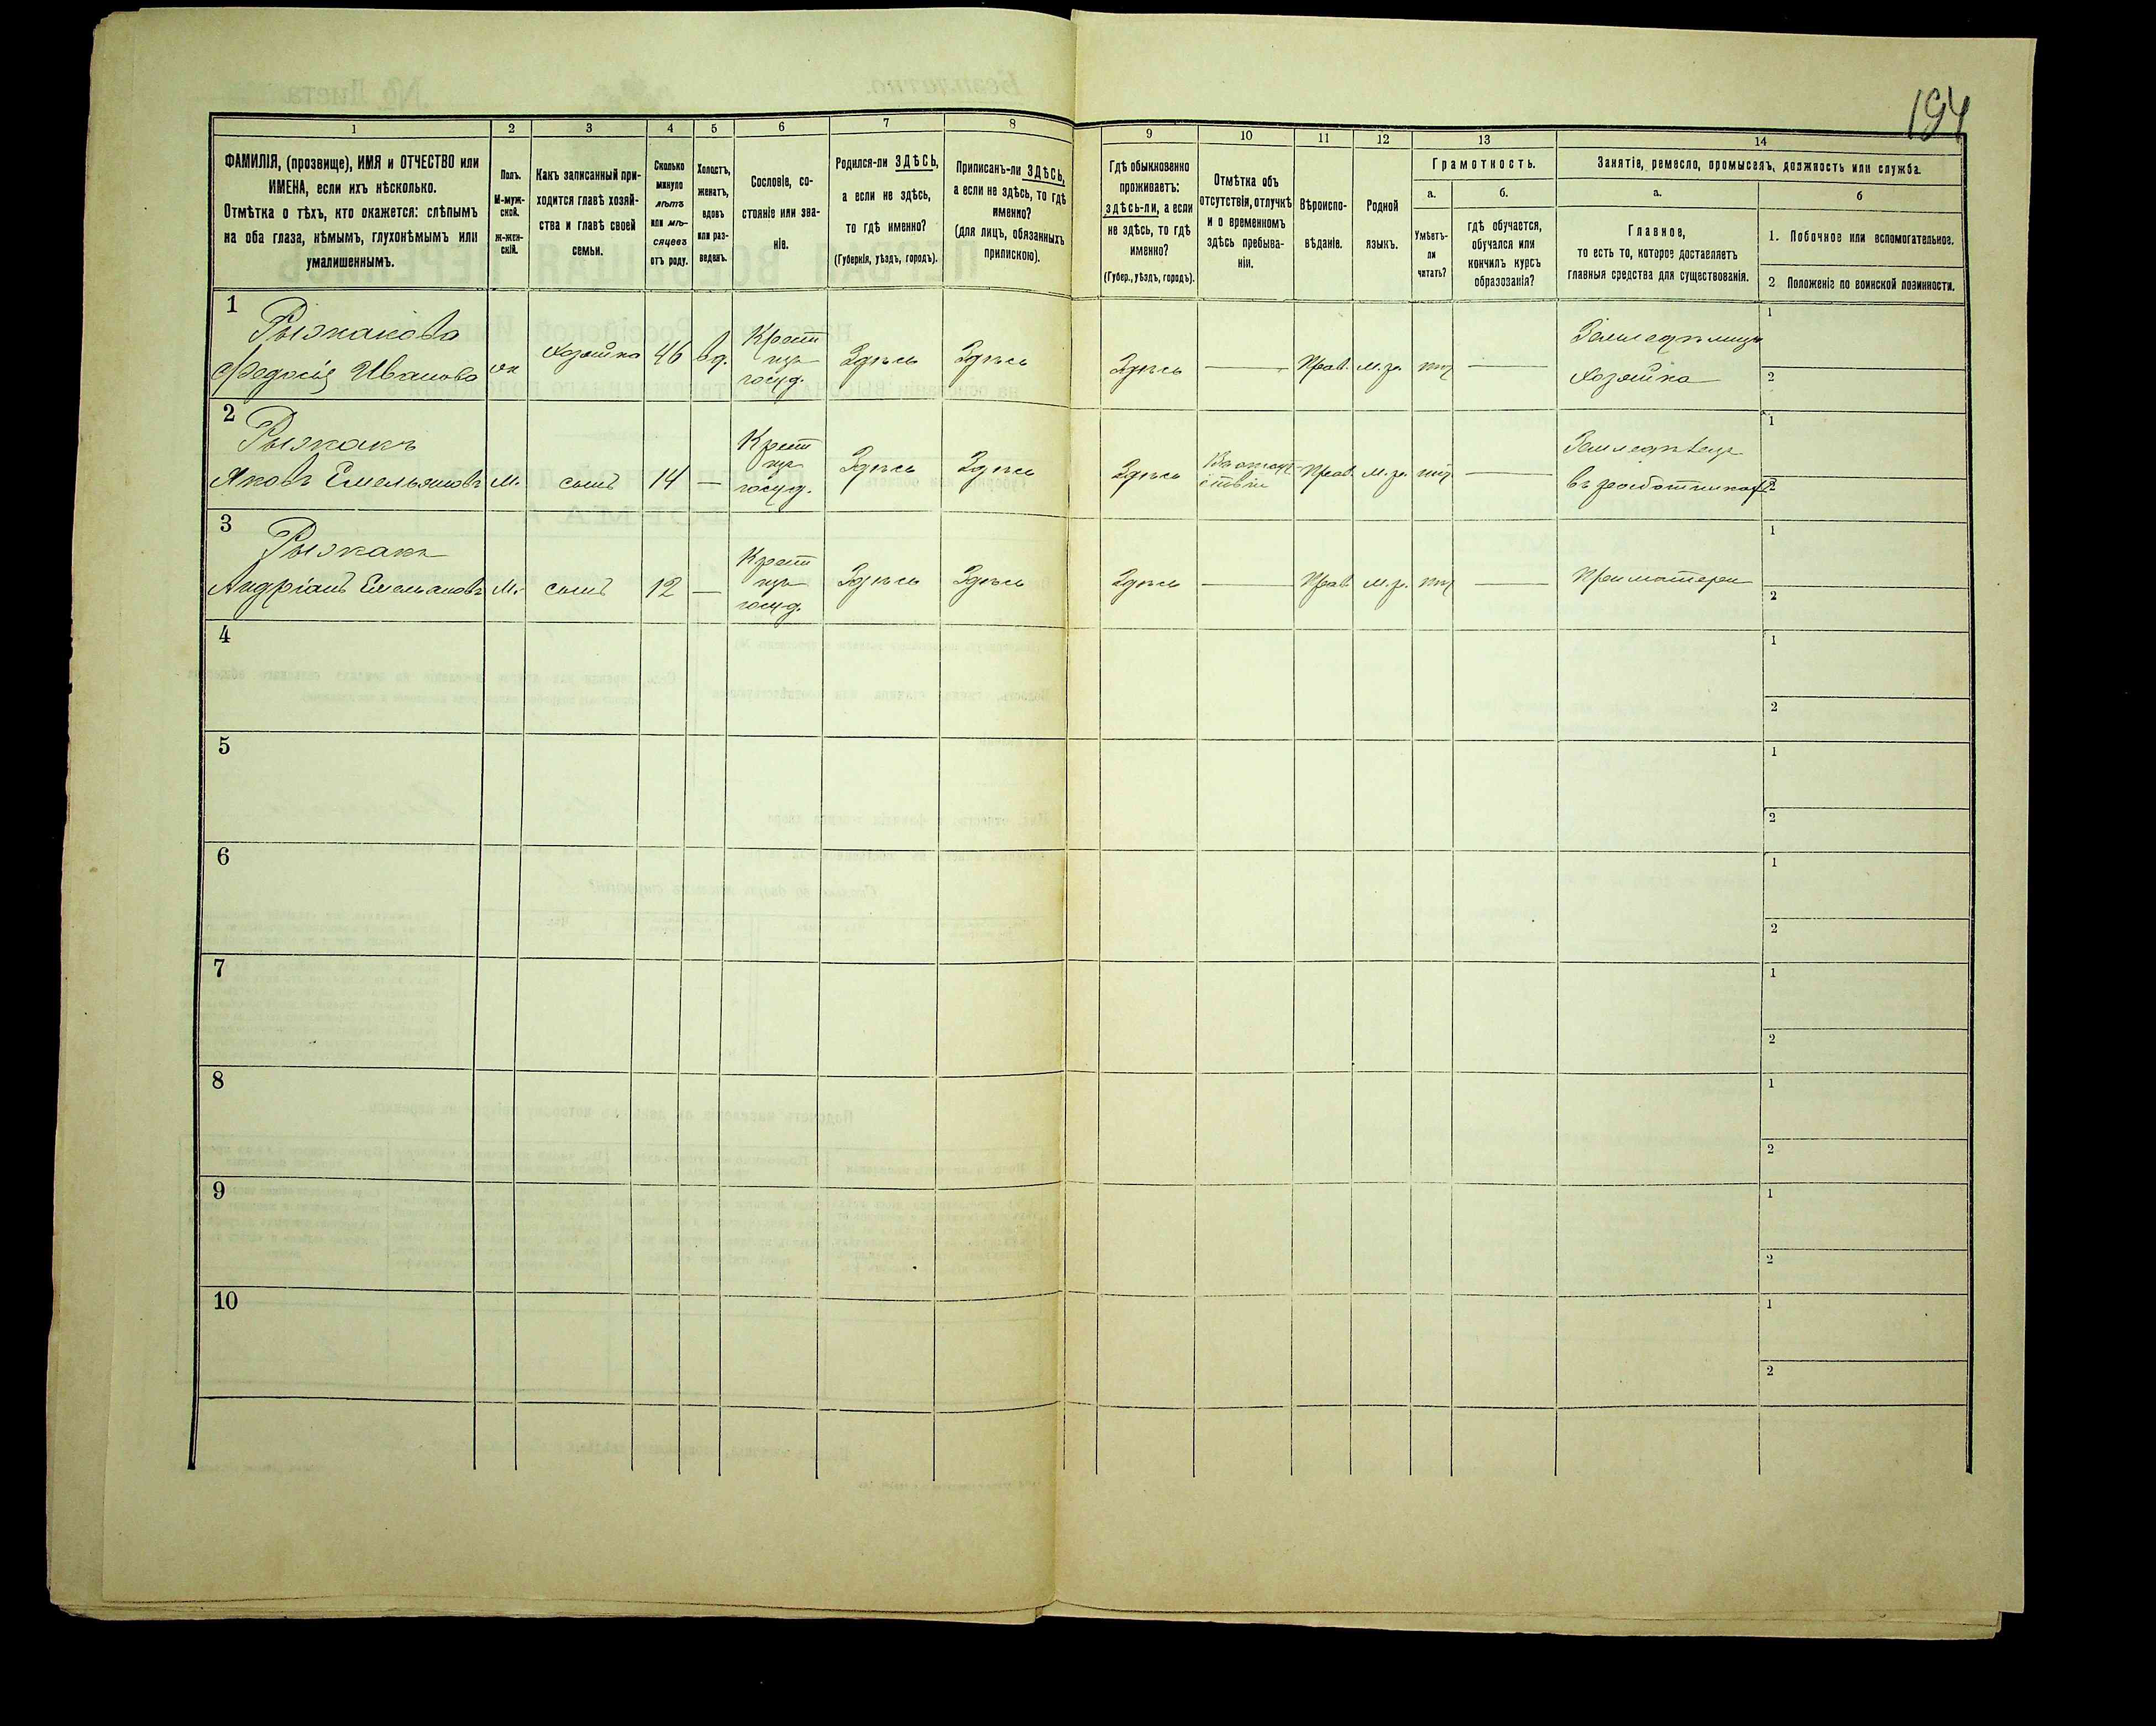 194
1 2 3 4 5 6 7 8 9 10 11 12 13 14
ФАМИЛІЯ, (прозвище), ИМЯ и ОТЧЕСТВО или
ИМЕНА, если ихъ нѣсколько.
Отмѣтка о тѣхъ, кто окажется: слѣпымъ
на оба глаза, нѣмымъ, глухонѣмымъ или
умалишеннымъ.
Полъ.
М-муж-
ской.
ж-жен-
скій.
Какъ записанный при-
ходится главѣ хозяй-
ства и главѣ своей
семьи.
Сколько
минуло
лѣтъ
или мѣ-
сяцевъ
отъ роду.
Холостъ,
женатъ,
вдовъ
или раз-
веденъ.
Сословіе, со-
стояніе или зва-
ніе.
Родился-ли ЗДѢСЬ,
а если не здѣсь,
то гдѣ именно?
(Губернія, уѣздъ, городъ).
Приписанъ-ли ЗДѢСЬ,
а если не здѣсь, то гдѣ
именно?
(для лицъ, обязанныхъ
припискою).
Гдѣ обыкновенно
проживаетъ:
здѣсь-ли, а если
не здѣсь, то гдѣ
именно?
(Губер., уѣздъ, городъ).
Отмѣтка объ
отсутствіи, отлучкѣ
и о временномъ
здѣсь пребыва-
ніи.
Вѣроиспо-
вѣданіе.
Родной
языкъ.
Грамотность.
а.
Умѣетъ-
ли
читать?
б.
гдѣ обучается,
обучался или
кончилъ курсъ
образованія?
Занятіе, ремесло, промыселъ, должность или служба.
а.
Главное,
то есть то, которое доставляетъ
главныя средства для существованія.
б
1. Побочное или вспомогательное.
2 Положеніе по воинской повинности.
1
Рыжакова
Федосія Иванова ж Хозяйка 46 вд. Крест изъ госуд. Здѣсь Здѣсь Здѣсь — Прав. м.р. нѣт — Земледѣлица
Хозяйка
1
2
2
Рыжакъ
Яковъ Емельяновъ М. сынъ 14 — Крест изъ госуд. Здѣсь Здѣсь Здѣсь В отсут-
ствіи Прав. м.р. нѣт — Земледѣлец
въ работникахъ
1
2
3
Рыжакъ
Андріанъ Емельяновъ М. сынъ 12 — Крест изъ госуд. Здѣсь Здѣсь Здѣсь — Прав. м.р. нѣт — При матери
1
2
4
1
2
5
1
2
6
1
2
7
1
2
8
1
2
9
1
2
10
1
2